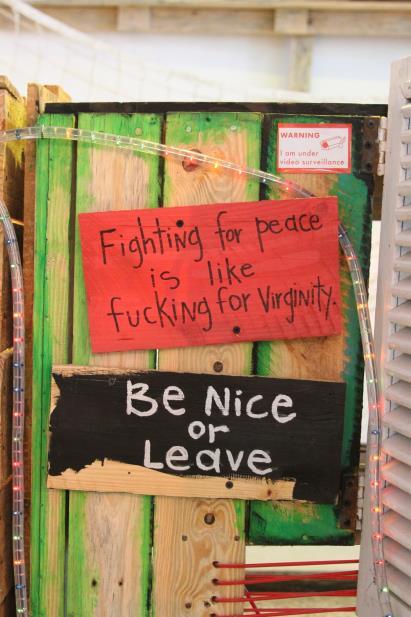 WARNING
I am under
video surveillance
Fighting for peace
is like
fucking for Virginity.
Be Nice
or
Leave